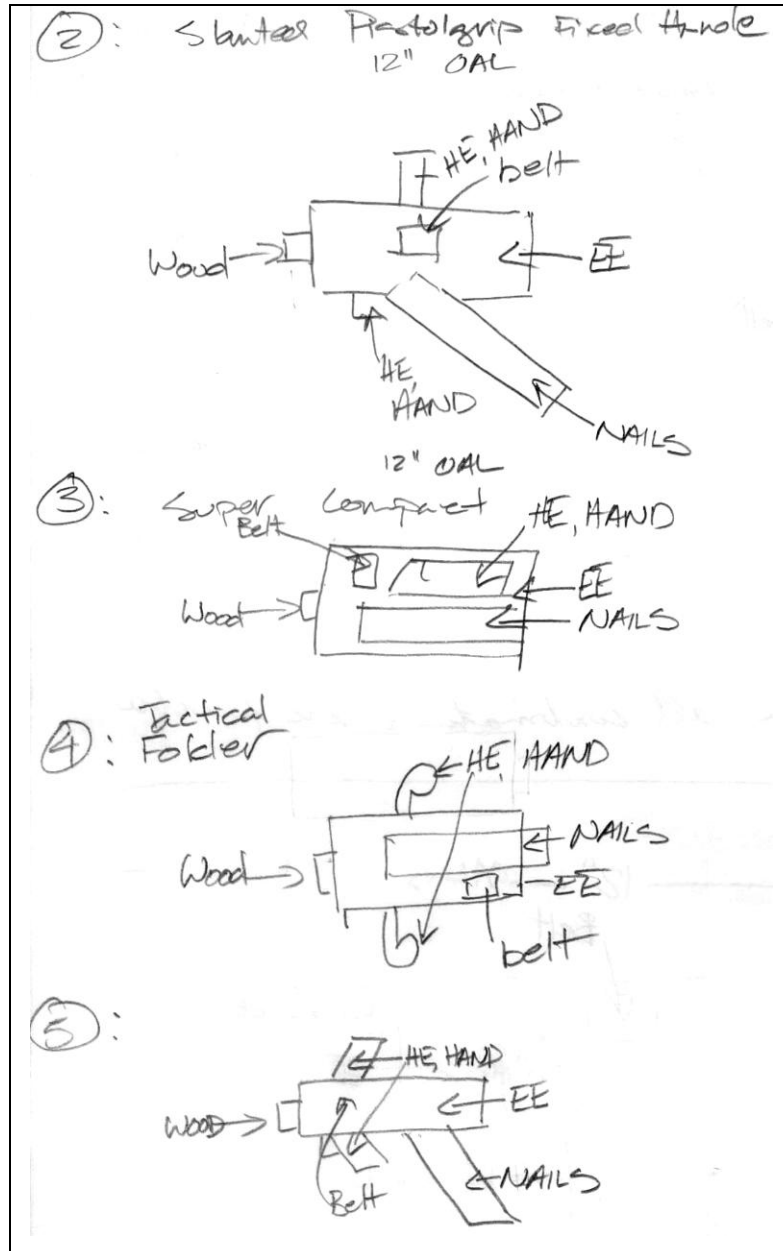 ②: Slanted Pistolgrip Fixed Handle
12" OAL
HE, HAND
belt
Wood
EE
HE, HAND
NAILS
12" OAL
③: Super Compact
Belt
HE, HAND
EE
Wood
NAILS
④: Tactical
Folder
HE, HAND
NAILS
Wood
EE
belt
⑤:
HE, HAND
EE
WOOD
NAILS
Belt